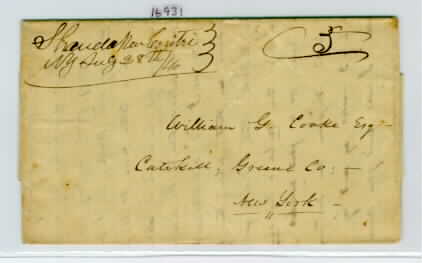 16931
Shandaken Centre
NY Aug 28th /46
5
William G. Cooke Esq -
Catskill, Greene Co: -
New York -